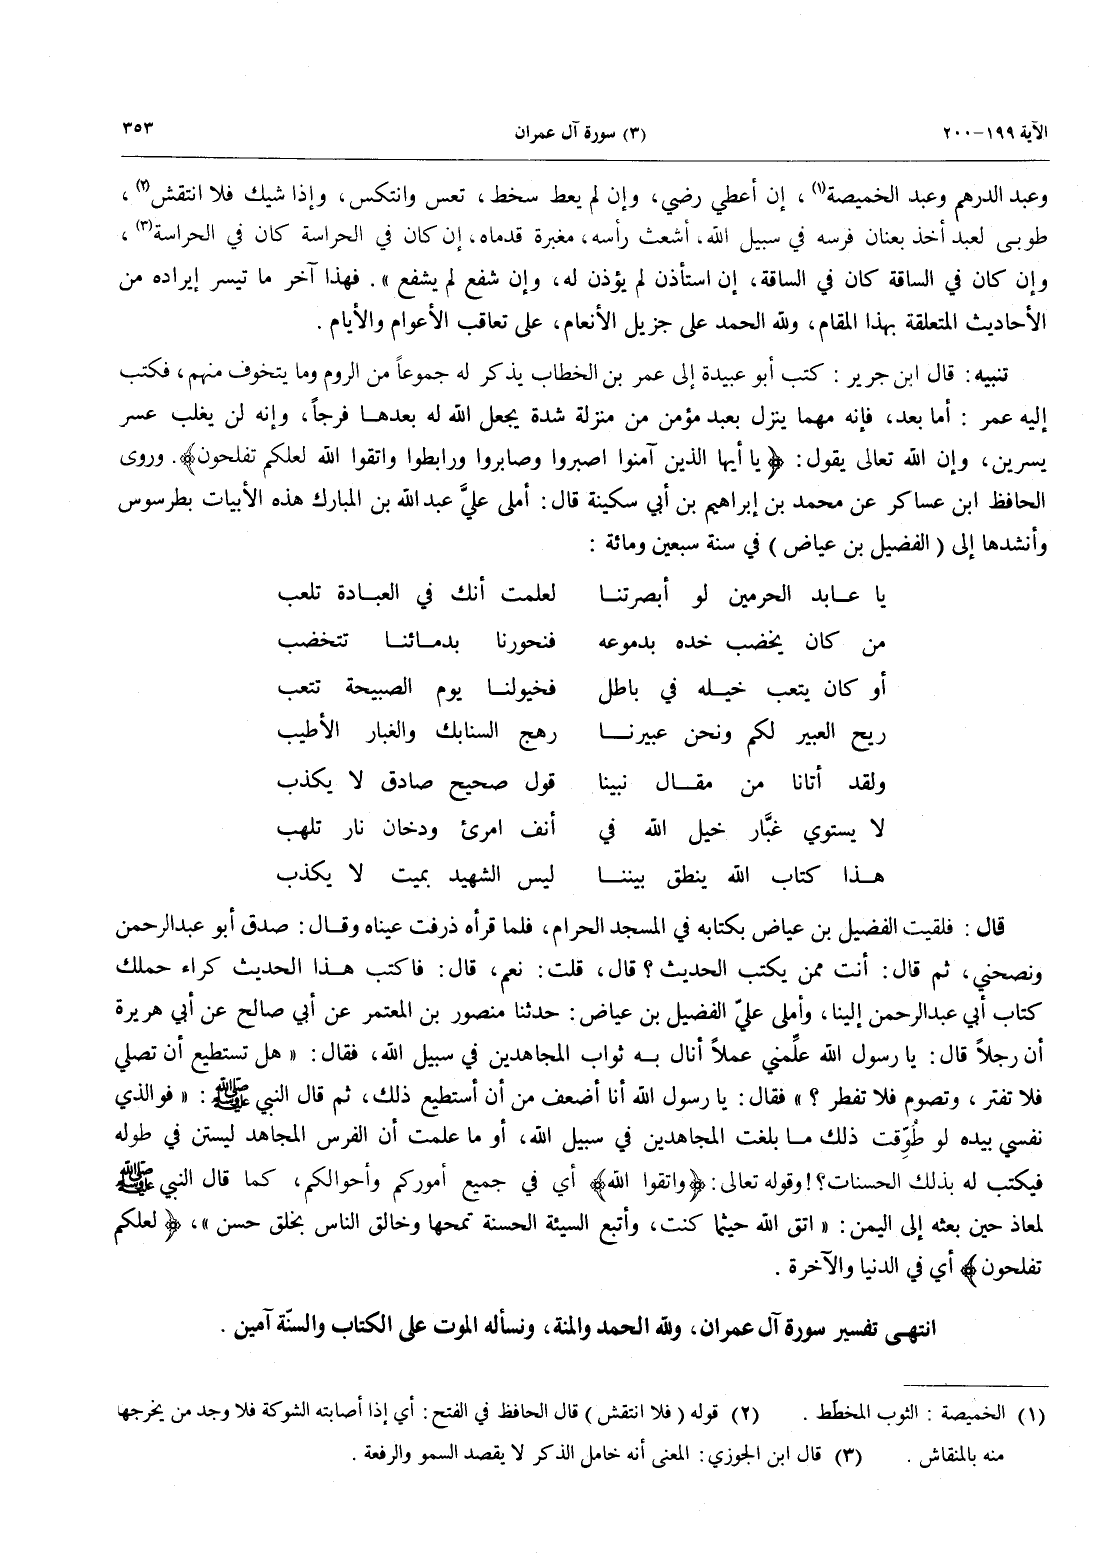 الآية ١٩٩-٢٠٠ (٣) سورة آل عمران ٣٥٣
وعبد الدرهم وعبد الخميصة(١) ، إن أعطي رضي، وإن لم يعط سخط، تعس وانتكس، وإذا شيك فلا انتقش(٢) ،
طوبى لعبد أخذ بعنان فرسه في سبيل الله، أشعث رأسه، مغبرة قدماه، إن كان في الحراسة كان في الحراسة(٣) ،
وإن كان في الساقة كان في الساقة، إن استأذن لم يؤذن له، وإن شفع لم يشفع ». فهذا آخر ما تيسر إيراده من
الأحاديث المتعلقة بهذا المقام، ولله الحمد على جزيل الأنعام، على تعاقب الأعوام والأيام .
تنبيه: قال ابن جرير : كتب أبو عبيدة إلى عمر بن الخطاب يذكر له جموعاً من الروم وما يتخوف منهم، فكتب
إليه عمر : أما بعد، فإنه مهما ينزل بعبد مؤمن من منزلة شدة يجعل الله له بعدها فرجاً، وإنه لن يغلب عسر
يسرين، وإن الله تعالى يقول: ﴿يا أيها الذين آمنوا اصبروا وصابروا ورابطوا واتقوا الله لعلكم تفلحون﴾. وروى
الحافظ ابن عساكر عن محمد بن إبراهيم بن أبي سكينة قال: أملى عليَّ عبدالله بن المبارك هذه الأبيات بطرسوس
وأنشدها إلى ( الفضيل بن عياض ) في سنة سبعين ومائة :
يا عـابد الحرمين لو أبصرتنـا لعلمت أنك في العبـادة تلعب
من كان يخضب خده بدموعه فنحورنا بدمـائنـا تتخضب
أو كان يتعب خيـله في باطل فخيولنـا يوم الصبيحة تتعب
ريح العبير لكم ونحن عبيرنـا رهج السنابك والغبار الأطيب
ولقد أتانا من مقـال نبينا قول صحيح صادق لا يكذب
لا يستوي غبَّار خيل الله في أنف امرئ ودخان نار تلهب
هـذا كتاب الله ينطق بيننـا ليس الشهيد بميت لا يكذب
قال : فلقيت الفضيل بن عياض بكتابه في المسجد الحرام، فلما قرأه ذرفت عيناه وقـال: صدق أبو عبدالرحمن
ونصحني، ثم قال: أنت ممن يكتب الحديث؟ قال، قلت: نعم، قال: فاكتب هـذا الحديث كراء حملك
كتاب أبي عبدالرحمن إلينا، وأملى عليّ الفضيل بن عياض: حدثنا منصور بن المعتمر عن أبي صالح عن أبي هريرة
أن رجلاً قال: يا رسول الله علِّمني عملاً أنال بـه ثواب المجاهدين في سبيل الله، فقال: « هل تستطيع أن تصلي
فلا تفتر ، وتصوم فلا تفطر ؟ » فقال: يا رسول الله أنا أضعف من أن أستطيع ذلك، ثم قال النبي ﷺ: « فوالذي
نفسي بيده لو طُوِّقت ذلك مـا بلغت المجاهدين في سبيل الله، أو ما علمت أن الفرس المجاهد ليستن في طوله
فيكتب له بذلك الحسنات؟! وقوله تعالى: ﴿واتقوا الله﴾ أي في جميع أموركم وأحوالكم، كما قال النبي ﷺ
لمعاذ حين بعثه إلى اليمن: « اتق الله حيثما كنت، وأتبع السيئة الحسنة تمحها وخالق الناس بخلق حسن »، ﴿لعلكم
تفلحون﴾ أي في الدنيا والآخرة .
انتهـى تفسير سورة آل عمران، ولله الحمد والمنة، ونسأله الموت على الكتاب والسنّة آمين .
(١) الخميصة : الثوب المخطّط . (٢) قوله ( فلا انتقش ) قال الحافظ في الفتح : أي إذا أصابته الشوكة فلا وجد من يخرجها
منه بالمنقاش . (٣) قال ابن الجوزي : المعنى أنه خامل الذكر لا يقصد السمو والرفعة .